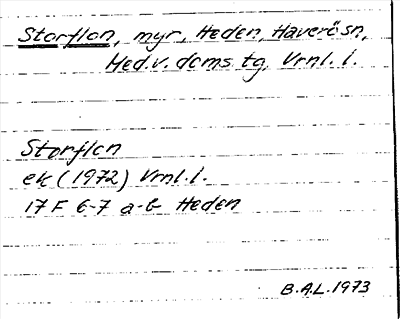 Storflon, myr, Heden, Haverö sn,
Med.v. doms. tg, Vrnl. l.
Storflon
ek (1972) Vrnl. l.
17F 6-7 a-b Heden
B.A.L. 1973